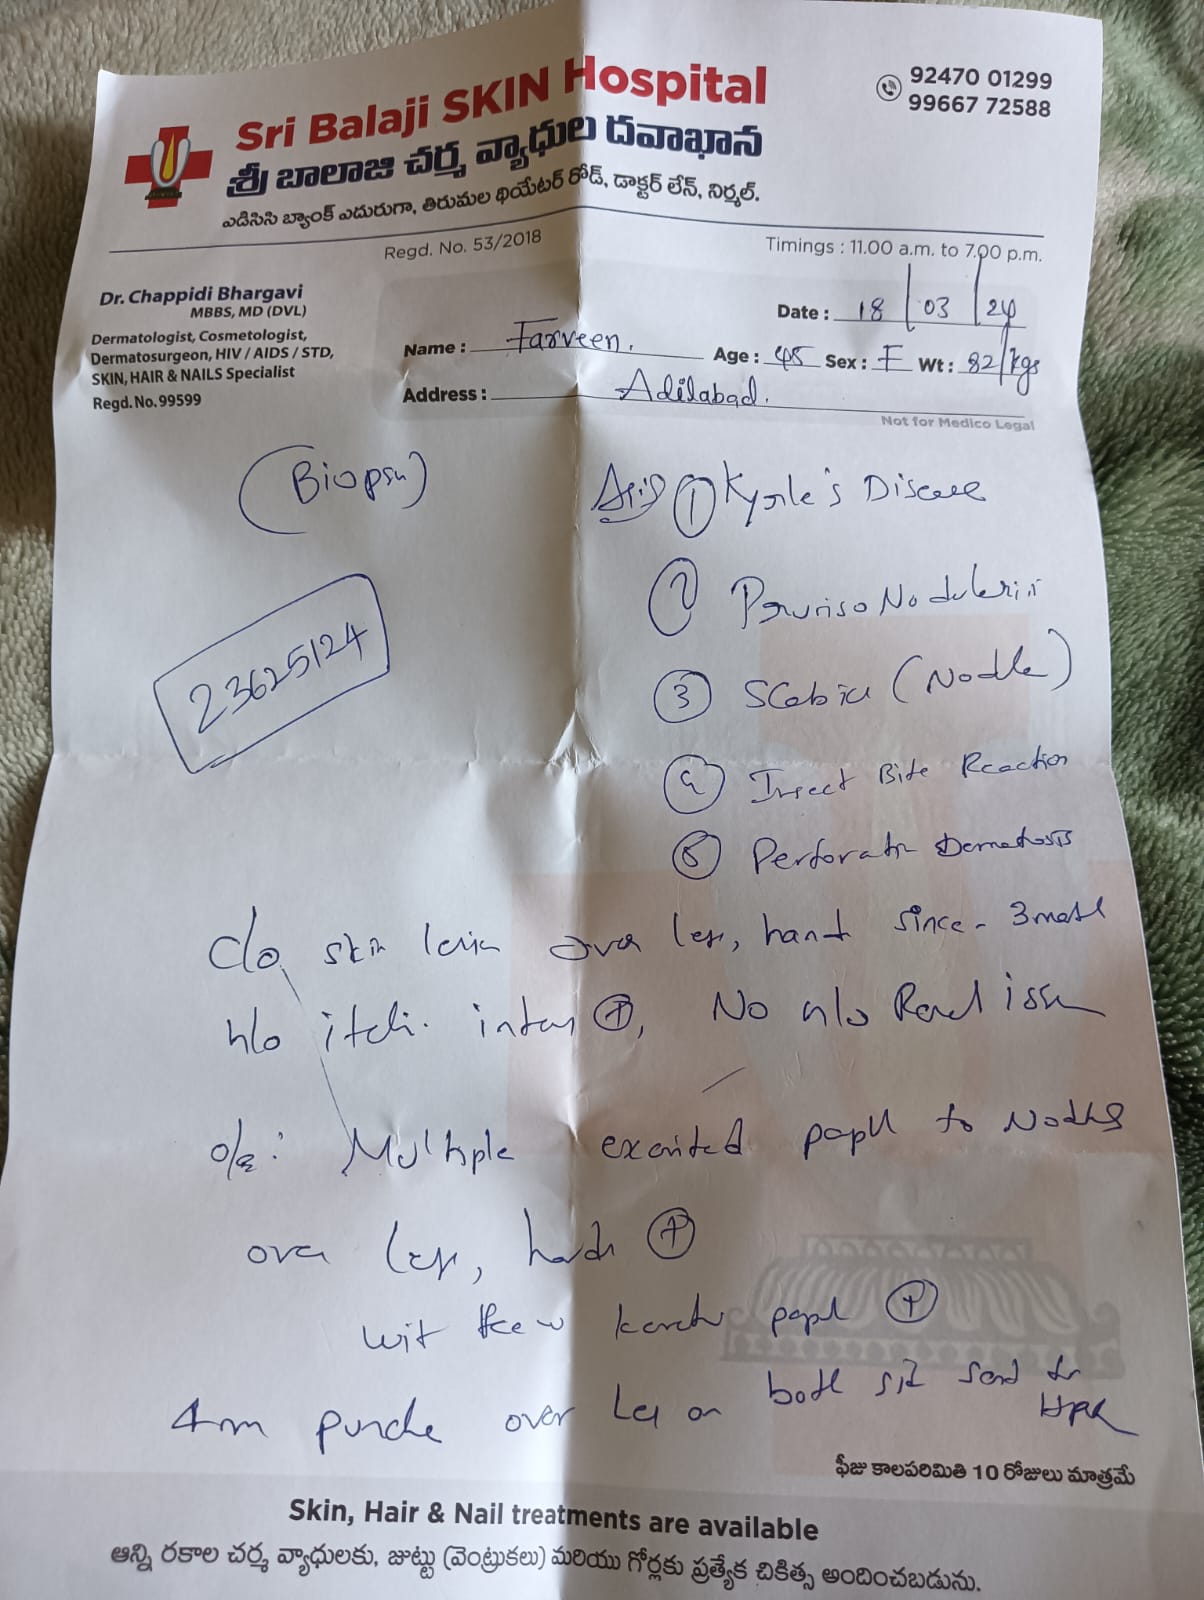 Sri Balaji SKIN Hospital
92470 01299
99667 72588
శ్రీ బాలాజి చర్మ వ్యాధుల దవాఖాన
ఎడిసిసి బ్యాంక్ ఎదురుగా, తిరుమల థియేటర్ రోడ్, డాక్టర్ లేన్, నిర్మల్.
Regd. No. 53/2018
Timings : 11.00 a.m. to 7.00 p.m.
Dr. Chappidi Bhargavi
MBBS, MD (DVL)
Dermatologist, Cosmetologist,
Dermatosurgeon, HIV / AIDS / STD,
SKIN, HAIR & NAILS Specialist
Regd. No. 99599
Date : 18/03/24
Name : Farveen. Age : 45 Sex : F Wt : 82/kgs
Address : Adilabad.
Not for Medico Legal
(Biopsy)
① Kyrle's Disease
23625124
② Prurigo Nodularis
③ Scabies (Nodule)
④ Insect Bite Reaction
⑤ Perforatn Dermatosis
c/o skin lesion over legs, hand since - 3 month
h/o itch. intens ⊕, No h/o Renal issu
o/e : Multiple excoriated papul to Nodules
over legs, hands ⊕
wit few kerato papul ⊕
4mm punche over leg on both sid send for
HPR
ఫీజు కాలపరిమితి 10 రోజులు మాత్రమే
Skin, Hair & Nail treatments are available
అన్ని రకాల చర్మ వ్యాధులకు, జుట్టు (వెంట్రుకలు) మరియు గోర్లకు ప్రత్యేక చికిత్స అందించబడును.